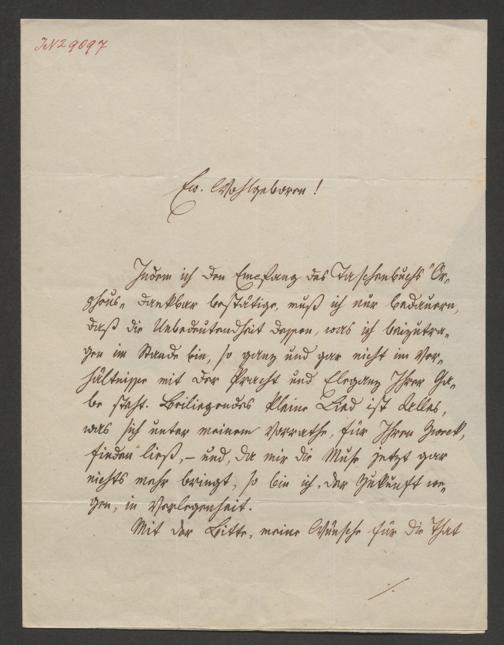 IN 29097
Ew. Wohlgeboren!
Indem ich den Empfang des Taschenbuchs "Or-
pheus" dankbar bestätige, muß ich nur bedauern,
daß die Unbedeutendheit dessen, was ich beizutra-
gen im Stande bin, so ganz und gar nicht im Ver-
hältnisse mit der Pracht und Eleganz Ihrer Ga-
be steht. Beiliegendes kleine Lied ist Alles,
was sich unter meinem Vorrathe, für Ihren Zweck,
finden ließ, – und, da mir die Muse jetzt gar
nichts mehr bringt, so bin ich, der Zukunft we-
gen, in Verlegenheit.
Mit der Bitte, meine Wünsche für die That
./.